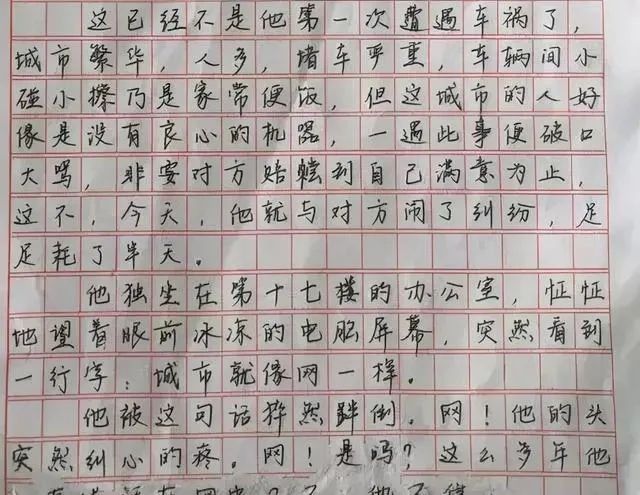 这已经不是他第一次遭遇车祸了，
城市繁华，人多，堵车严重，车辆间小
碰小擦乃是家常便饭，但这城市的人好
像是没有良心的机器，一遇此事便破口
大骂，非要对方赔偿到自己满意为止，
这不，今天，他就与对方闹了纠纷，足
足耗了半天。
他独坐在第十七楼的办公室，怔怔
地望着眼前冰凉的电脑屏幕，突然看到
一行字：城市就像网一样。
他被这句话猝然绊倒。网！他的头
突然纠心的疼。网！是吗？这么多年他